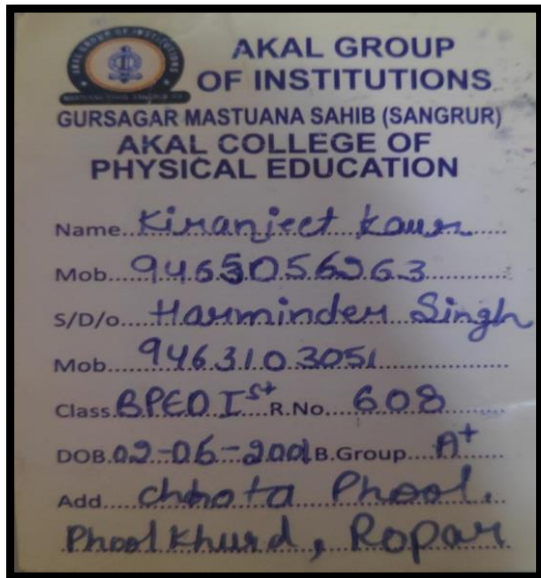 AKAL GROUP
OF INSTITUTIONS
GURSAGAR MASTUANA SAHIB (SANGRUR)
AKAL COLLEGE OF
PHYSICAL EDUCATION
Name Kiranjeet Kaur
Mob. 9465056263
S/D/o Harminder Singh
Mob. 9463103051
Class BPED Ist R.No. 608
DOB. 02-06-2001 B.Group A+
Add Chhota Phool,
Phool Khurd, Ropar